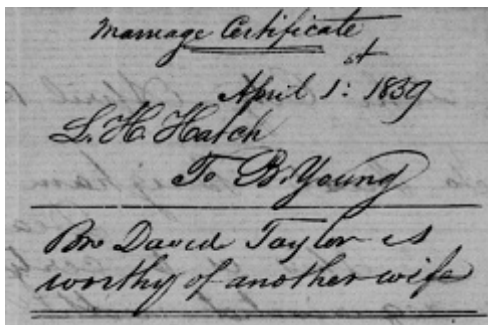 Marriage Certificate
April 1st: 1839
L. H. Hatch
To B. Young
Bro David Taylor is
worthy of another wife